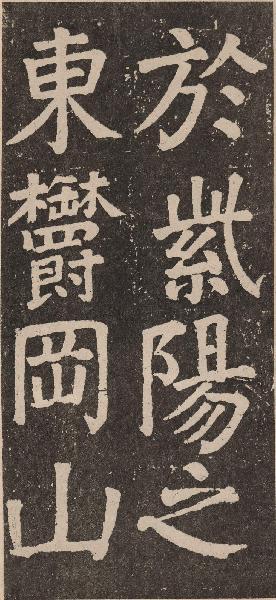 於紫陽之
東鬱岡山